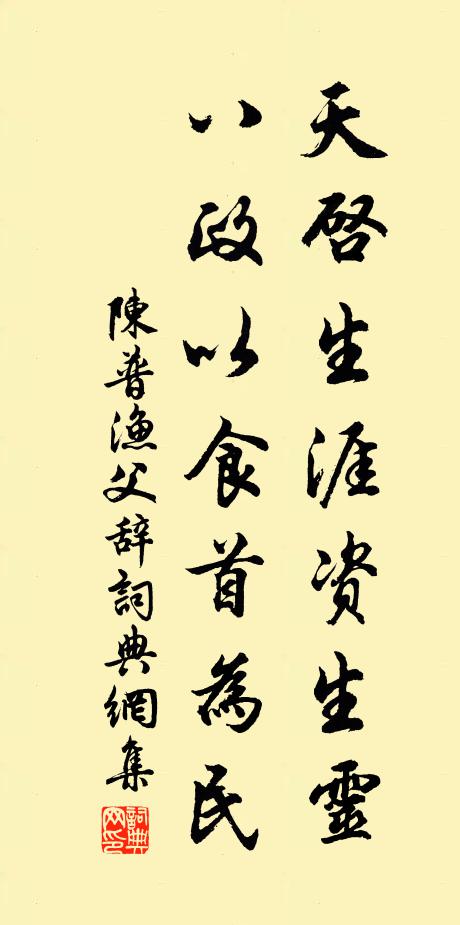 天啓生涯資生靈
八政以食首為民
陳普漁父辞詞典網集
詞典网印